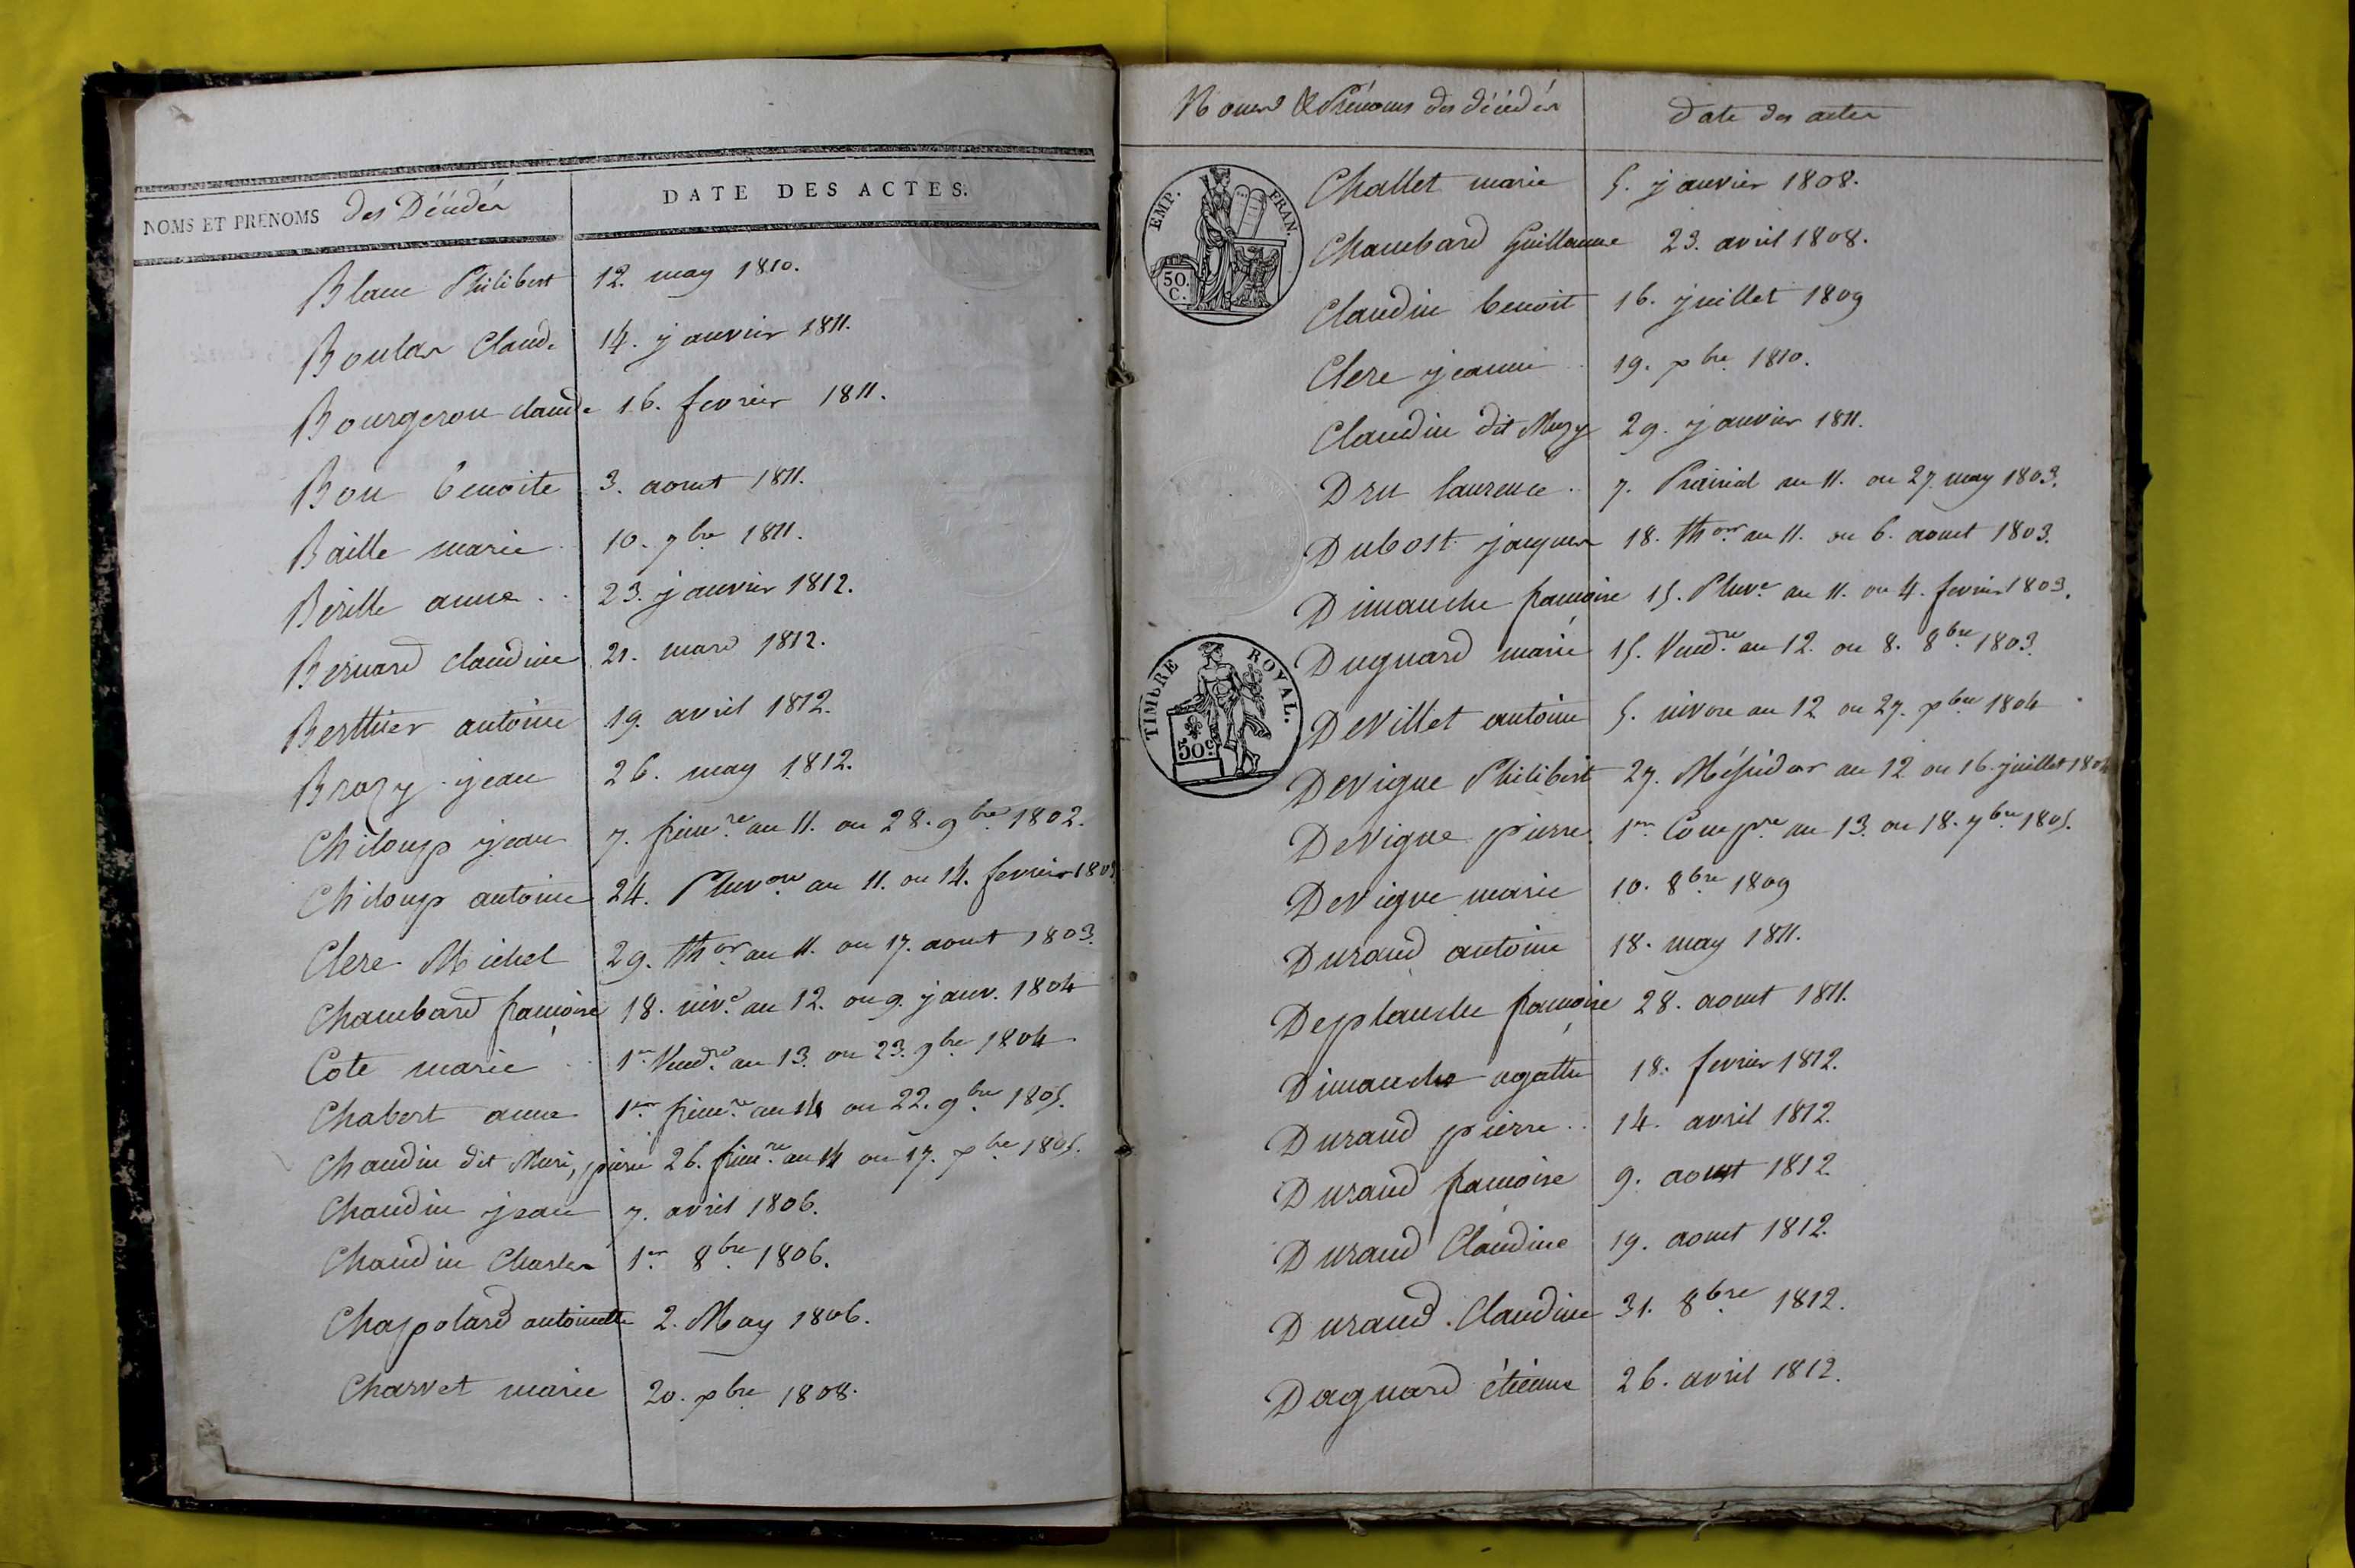 NOMS ET PRENOMS des Décédés DATE DES ACTES.
Blanc Philibert 12. may 1810.
Boulas Claude 14. janvier 1811.
Bourgeron claude 16. fevrier 1811.
Bon benoite 3. aout 1811.
Baille marie 10. 7bre 1811.
Bérille anne 23. janvier 1812.
Bernard claudine 21. mars 1812.
Berthier antoine 19. avril 1812.
Brozy jean 26. may 1812.
Chiloup jean 7. frimre an 11. ou 28. 9bre 1802.
Chiloup antoine 24. Pluvose an 11. ou 14. fevrier 1803
Clere Michel 29. thor an 11. ou 17. aout 1803.
Chambard françoise 18. nive an 12. ou 9. janv. 1804
Cote marie 1er Vendre an 13. ou 23. 9bre 1804
Chabert anne 1er frimre an 14 ou 22. 9bre 1805.
Chaudin dit Muri, pierre 26. frimre an 14 ou 17. xbre 1805.
Chaudin jean 7. avril 1806.
Chaudin Charles 1er 8bre 1806.
Chapolard antoinette 2. May 1806.
Charvet marie 20. xbre 1808.
Noms & Prénoms des décédés date des actes
EMP. FRAN.
50. C.
Challet marie 5. janvier 1808.
Chambard Guillaume 23. avril 1808.
Claudin benoit 16. juillet 1809
Clere jeanne 19. xbre 1810.
Claudin dit Muzy 29. janvier 1811.
Dru laurence 7. Prairial an 11. ou 27. may 1803.
Dubost jacques 18. thor an 11. ou 6. aout 1803.
Dimanche françoise 15. Pluve an 11. ou 4. fevrier 1803.
TIMBRE ROYAL.
50c
Duguard marie 15. Vendre an 12. ou 8. 8bre 1803.
Devillet antoine 5. nivose an 12 ou 27. xbre 1804
Devigne Philibert 27. Messidor an 12 ou 16. juillet 1804
Devigne pierre 1er Compre an 13. ou 18. 7bre 1805.
Devigne marie 10. 8bre 1809
Durand antoine 18. may 1811.
Deplanche françoise 28. aout 1811.
Dimanche agathe 18. fevrier 1812.
Durand pierre 14. avril 1812.
Durand françoise 9. aout 1812
Durand Claudine 19. aout 1812.
Durand Claudine 31. 8bre 1812.
Daguard étienne 26. avril 1812.